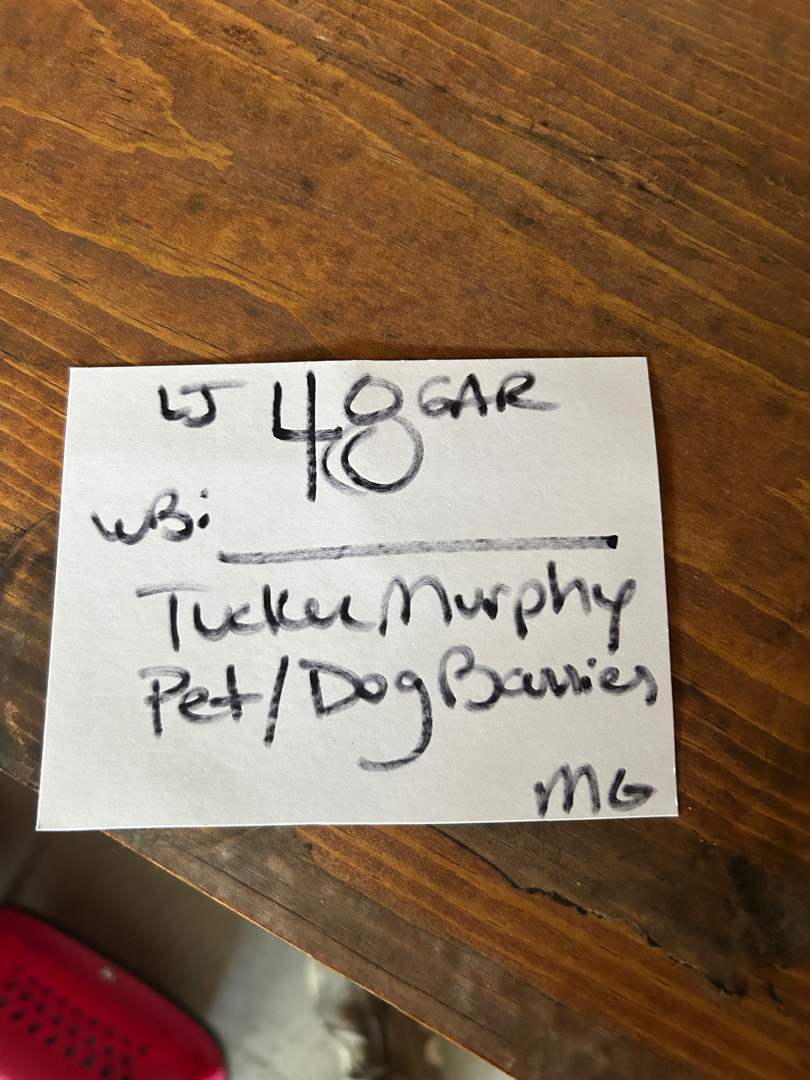 LJ 48 GAR
WB:
Tucker Murphy
Pet/Dog Barrier
MG